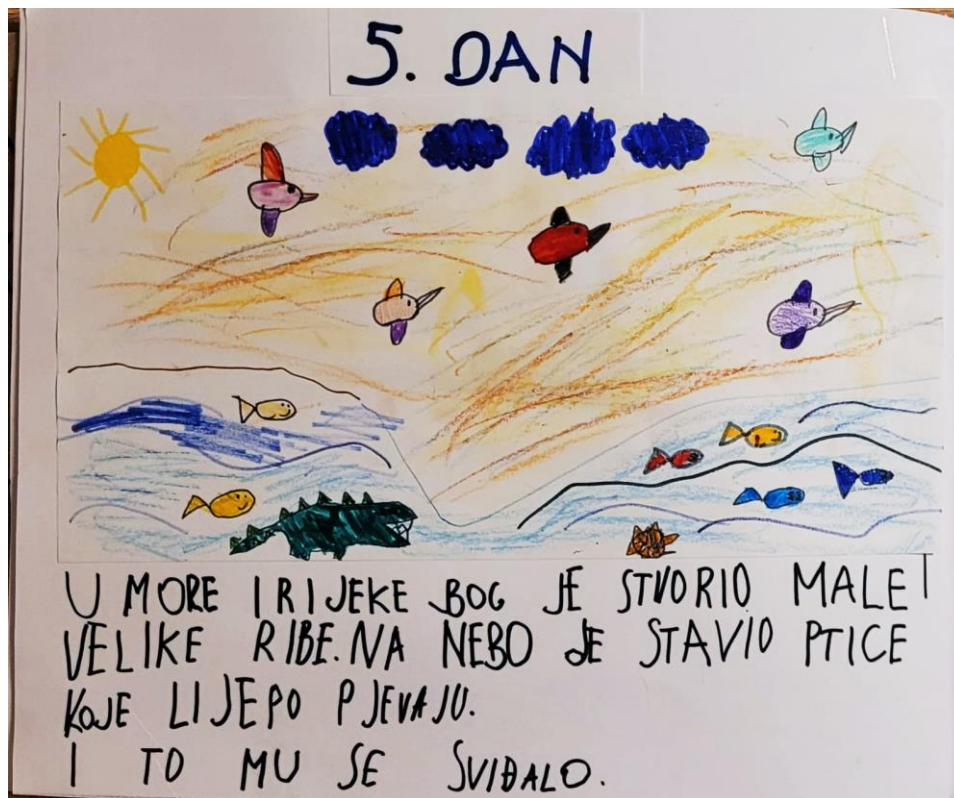 5. DAN
U MORE I RIJEKE BOG JE STVORIO MALE I
VELIKE RIBE. NA NEBO JE STAVIO PTICE
KOJE LIJEPO PJEVAJU.
I TO MU SE SVIĐALO.